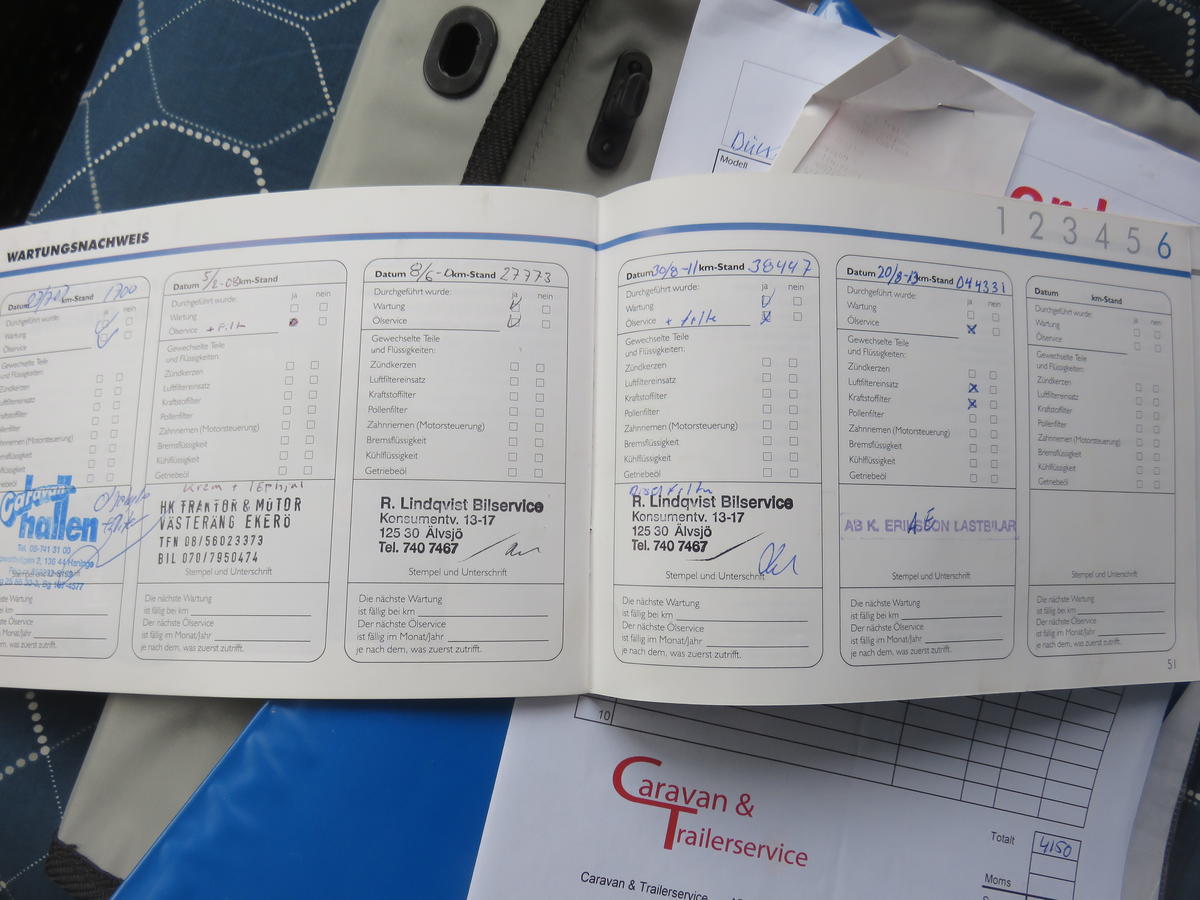 Modell
WARTUNGSNACHWEIS
1 2 3 4 5 6
Datum km-Stand 1700
ja nein
Durchgeführt wurde:
Wartung
Gewechselte Teile
Flüssigkeiten:
Zündkerzen
Luftfiltereinsatz
Kraftstofffilter
Pollenfilter
Caravan
hallen
Tel. 08-741 31 00
Die nächste Wartung
ist fällig bei km
Der nächste Ölservice
ist fällig im Monat/Jahr
je nach dem, was zuerst zutrifft.
Datum 5/2-08 km-Stand
Durchgeführt wurde: ja nein
Wartung
Ölservice + Filt
Gewechselte Teile
und Flüssigkeiten:
Zündkerzen
Luftfiltereinsatz
Kraftstofffilter
Pollenfilter
Zahnriemen (Motorsteuerung)
Bremsflüssigkeit
Kühlflüssigkeit
Getriebeöl
HK TRAKTOR & MOTOR
VÄSTERÄNG EKERÖ
TFN 08/56023373
BIL 070/7950474
Stempel und Unterschrift
Die nächste Wartung
ist fällig bei km
Der nächste Ölservice
ist fällig im Monat/Jahr
je nach dem, was zuerst zutrifft.
Datum 8/6- km-Stand 27773
Durchgeführt wurde: ja nein
Wartung
Ölservice
Gewechselte Teile
und Flüssigkeiten:
Zündkerzen
Luftfiltereinsatz
Kraftstofffilter
Pollenfilter
Zahnriemen (Motorsteuerung)
Bremsflüssigkeit
Kühlflüssigkeit
Getriebeöl
R. Lindqvist Bilservice
Konsumentv. 13-17
125 30 Älvsjö
Tel. 740 7467
Stempel und Unterschrift
Die nächste Wartung
ist fällig bei km
Der nächste Ölservice
ist fällig im Monat/Jahr
je nach dem, was zuerst zutrifft.
Datum 30/8-11 km-Stand 38447
Durchgeführt wurde: ja nein
Wartung
Ölservice + filte
Gewechselte Teile
und Flüssigkeiten:
Zündkerzen
Luftfiltereinsatz
Kraftstofffilter
Pollenfilter
Zahnriemen (Motorsteuerung)
Bremsflüssigkeit
Kühlflüssigkeit
Getriebeöl
R. Lindqvist Bilservice
Konsumentv. 13-17
125 30 Älvsjö
Tel. 740 7467
Stempel und Unterschrift
Die nächste Wartung
ist fällig bei km
Der nächste Ölservice
ist fällig im Monat/Jahr
je nach dem, was zuerst zutrifft.
Datum 20/8-13 km-Stand 044331
Durchgeführt wurde: ja nein
Wartung
Ölservice
Gewechselte Teile
und Flüssigkeiten:
Zündkerzen
Luftfiltereinsatz
Kraftstofffilter
Pollenfilter
Zahnriemen (Motorsteuerung)
Bremsflüssigkeit
Kühlflüssigkeit
Getriebeöl
AB K. ERIKSSON LASTBILAR
AE
Stempel und Unterschrift
Die nächste Wartung
ist fällig bei km
Der nächste Ölservice
ist fällig im Monat/Jahr
je nach dem, was zuerst zutrifft.
Datum km-Stand
Durchgeführt wurde: ja nein
Wartung
Ölservice
Gewechselte Teile
und Flüssigkeiten:
Zündkerzen
Luftfiltereinsatz
Kraftstofffilter
Pollenfilter
Zahnriemen (Motorsteuerung)
Bremsflüssigkeit
Kühlflüssigkeit
Getriebeöl
Stempel und Unterschrift
Die nächste Wartung
ist fällig bei km
Der nächste Ölservice
ist fällig im Monat/Jahr
je nach dem, was zuerst zutrifft.
51
10
Caravan &
Trailerservice
Caravan & Trailerservice
Totalt 4150
Moms